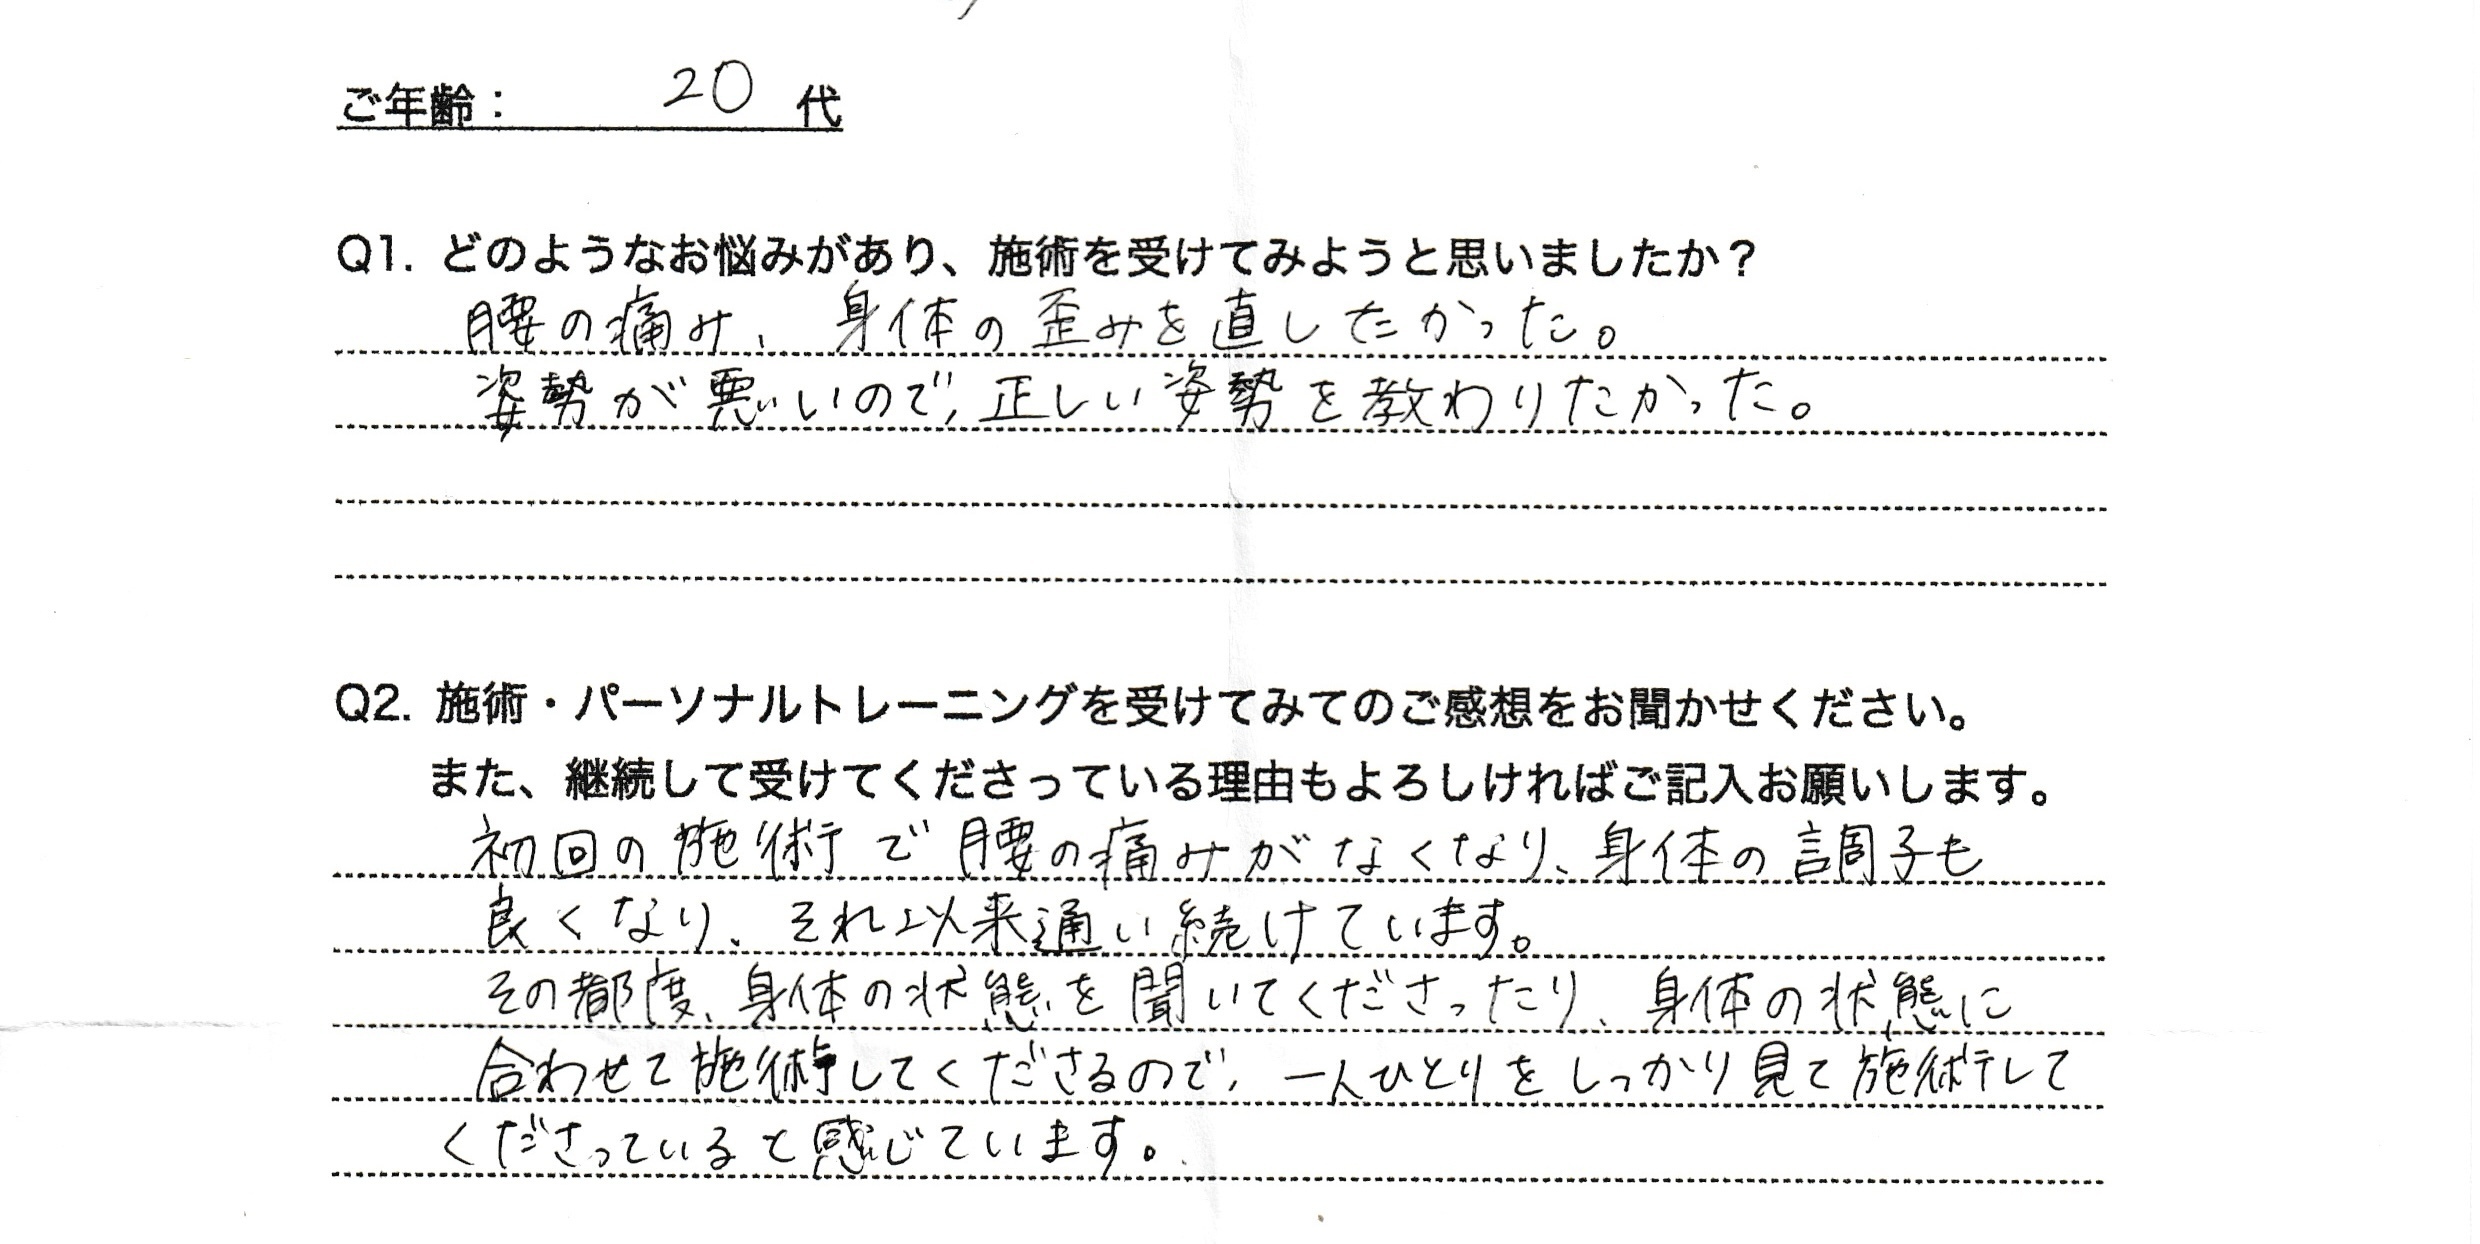 ご年齢： 20 代
Q1. どのようなお悩みがあり、施術を受けてみようと思いましたか？
腰の痛み、身体の歪みを直したかった。
姿勢が悪いので、正しい姿勢を教わりたかった。
Q2. 施術・パーソナルトレーニングを受けてみてのご感想をお聞かせください。
また、継続して受けてくださっている理由もよろしければご記入お願いします。
初回の施術で腰の痛みがなくなり、身体の調子も
良くなり、それ以来通い続けています。
その都度、身体の状態を聞いてくださったり、身体の状態に
合わせて施術してくださるので、一人ひとりをしっかり見て施術して
くださっていると感じています。